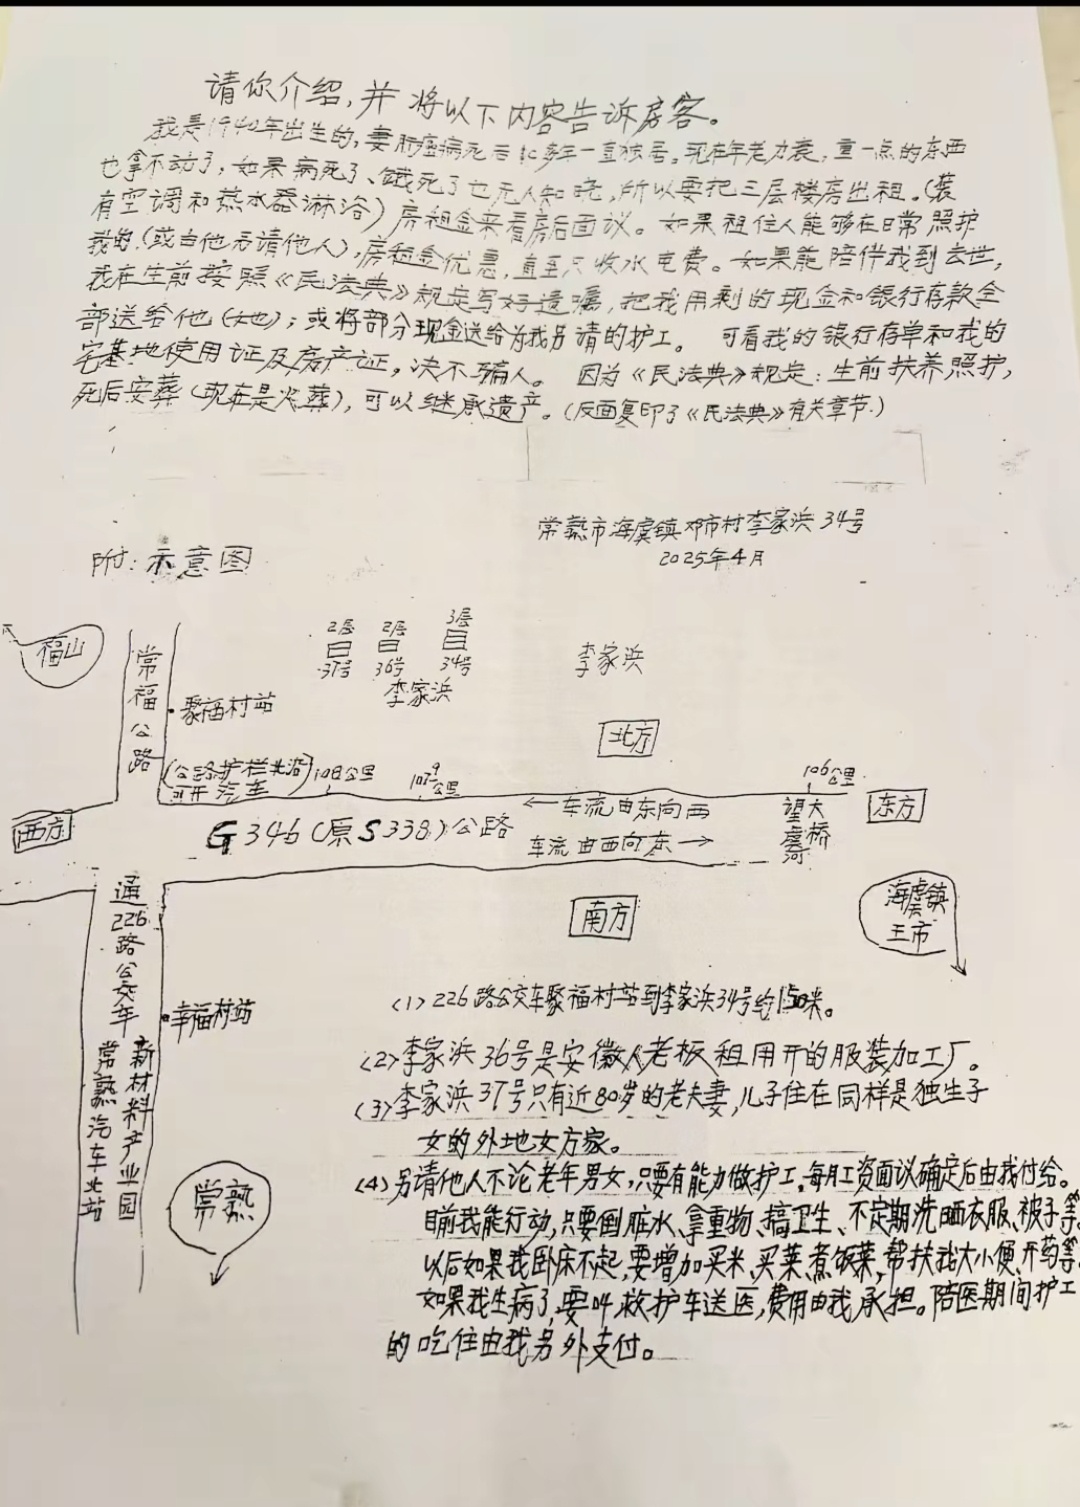 请你介绍,并将以下内容告诉房客。
我是1940年出生的,妻肺癌病死后10多年一直独居。现在年老力衰,重一点的东西
也拿不动了,如果病死了、饿死了也无人知晓,所以要把三层楼房出租。(装
有空调和热水器淋浴)房租金来看房后面议。如果租住人能够在日常照护
我的,(或由他去请他人),房租金优惠,直至只收水电费。如果能陪伴我到去世,
我在生前按照《民法典》规定写好遗嘱,把我用剩的现金和银行存款全
部送给他(她);或将部分现金送给为我另请的护工。可看我的银行存单和我的
宅基地使用证及房产证,决不骗人。因为《民法典》规定:生前扶养照护,
死后安葬(现在是火葬),可以继承遗产。(反面复印了《民法典》有关章节.)
常熟市海虞镇邓市村李家浜34号
2025年4月
附:示意图
福山
常福公路
2层
37号
2层
36号
3层
34号
李家浜
李家浜
聚福村站
北方
(公路护栏北沿)
可开汽车
108公里
107.9
公里
106公里
西方
←车流由东向西
G346(原S338)公路
车流由西向东→
望虞河
大桥
东方
南方
海虞镇
王市
通226路公交车
幸福村站
新材料产业园
常熟汽车北站
常熟
(1)226路公交车聚福村站到李家浜34号约150米。
(2)李家浜36号是安徽人老板租用开的服装加工厂。
(3)李家浜37号只有近80岁的老夫妻,儿子住在同样是独生子
女的外地女方家。
(4)另请他人不论老年男女,只要有能力做护工,每月工资面议确定后由我付给。
目前我能行动,只要倒脏水、拿重物、搞卫生、不定期洗晒衣服、被子等。
以后如果我卧床不起,要增加买米、买菜、煮饭菜,帮扶我大小便、开药等。
如果我生病了,要叫救护车送医,费用由我承担。陪医期间护工
的吃住由我另外支付。